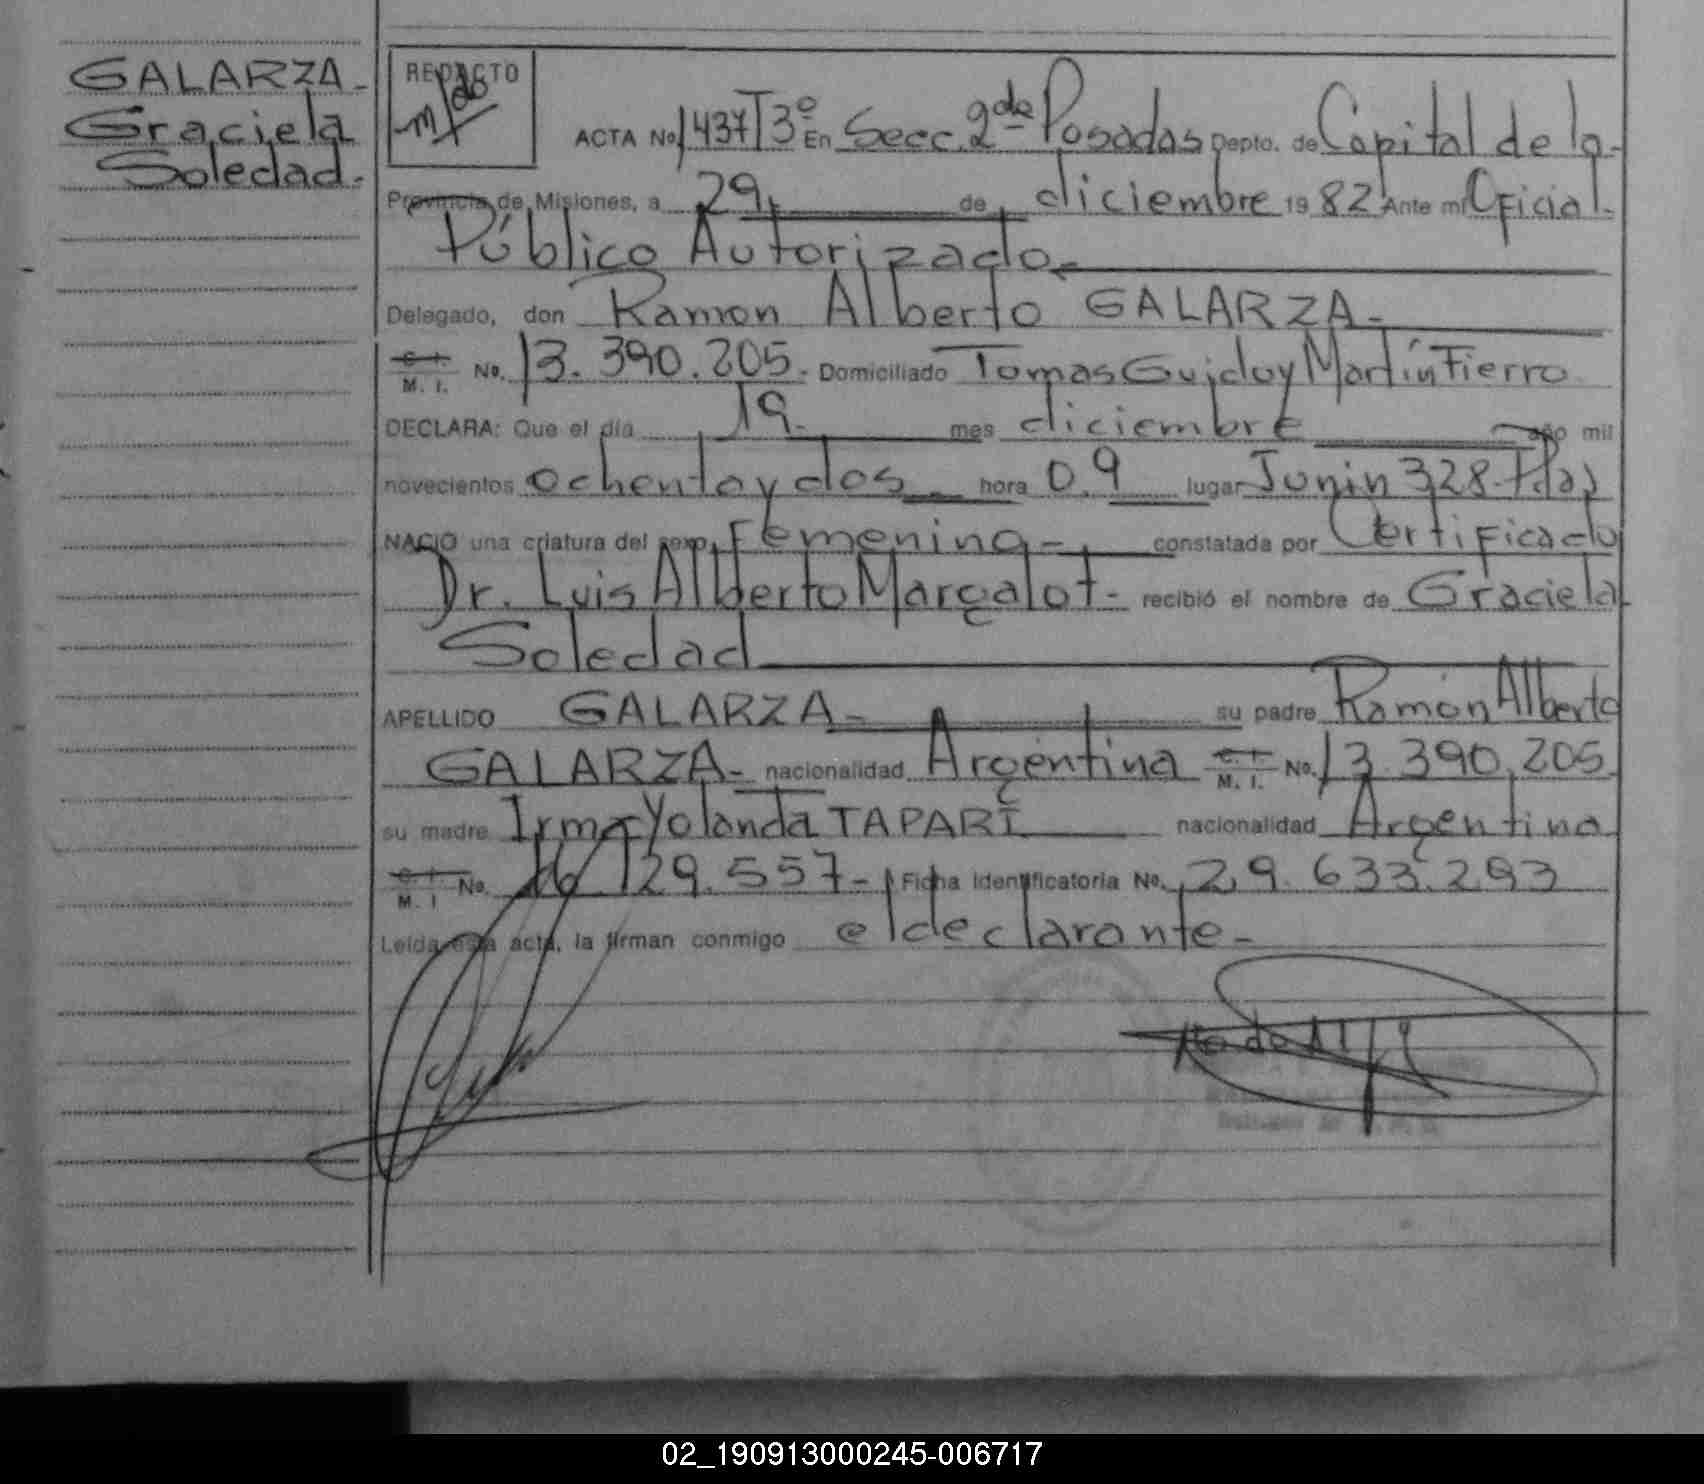 GALARZA-
Graciela
Soledad.
REDACTO
ACTA No 1437 T3º En Secc. 2da Posadas Depto. de Capital de la-
Provincia de Misiones, a 29 de diciembre 1982 Ante mi Oficial
Público Autorizado-
Delegado, don Ramon Alberto GALARZA-
C. I. M. I. No. 13.390.205- Domiciliado Tomas Guido y Martín Fierro
DECLARA: Que el día 19- mes diciembre año mil
novecientos ochenta y dos hora 0.9 lugar Junin 328-Pdas
NACIO una criatura del sexo Femenino- constatada por Certificado
Dr. Luis Alberto Margalot- recibió el nombre de Graciela
Soledad
APELLIDO GALARZA- su padre Ramón Alberto
GALARZA- nacionalidad Argentina C. I. M. I. No. 13.390.205
su madre Irma Yolanda TAPARI nacionalidad Argentina
C. I. M. I No. 16.129.557- Ficha Identificatoria No. 29.633.293
Leída esta acta, la firman conmigo el declarante-
02_190913000245-006717